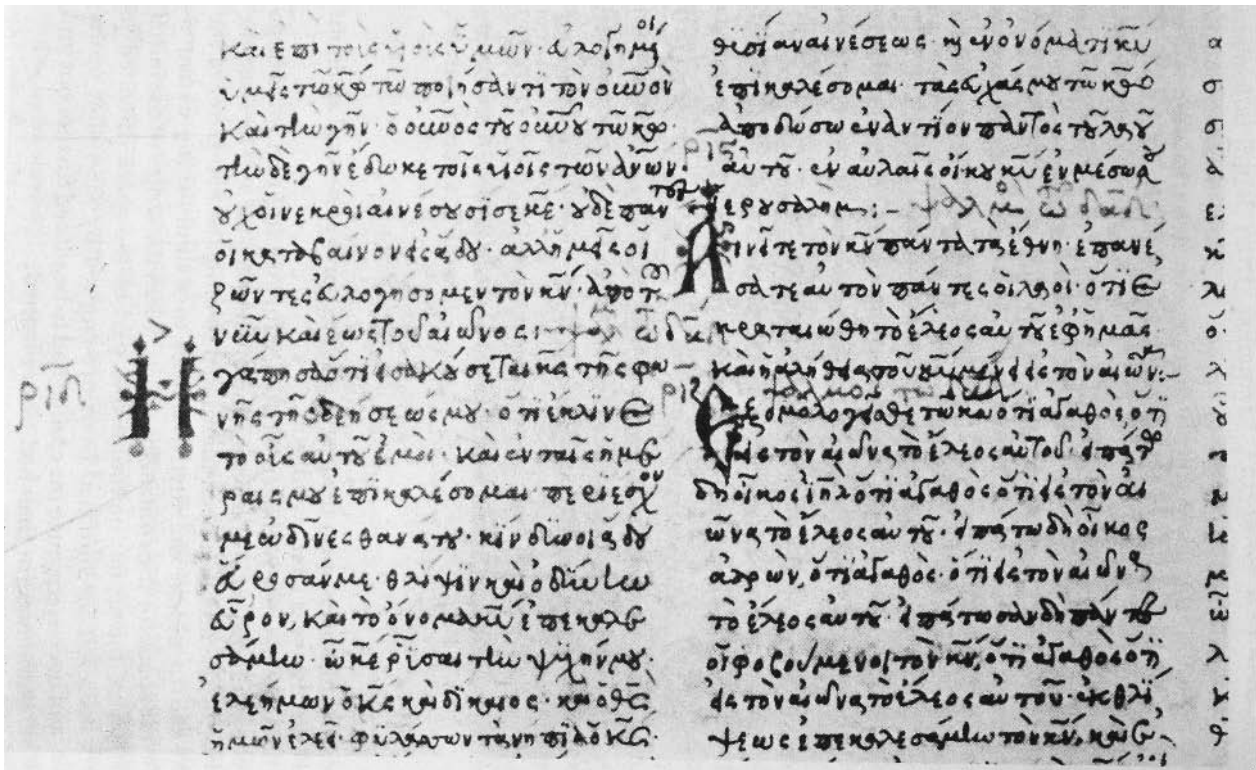 καὶ ἐπὶ τοὺς υἱοὺς ὑμῶν· εὐλογημένοι
ὑμεῖς τῶ κ̅ω̅ τῶ ποιήσαντι τὸν οὐ̅νὸν
καὶ τὴν γῆν· ὁ οὐ̅νὸς τοῦ οὐ̅νοῦ τῶ κ̅ω̅·
τὴν δὲ γῆν ἔδωκε τοῖς υἱοῖς τῶν ἀ̅νῶν·
οὐχ οἱ νεκροὶ αἰνέσουσί σε κ̅ε̅· οὐδὲ πάντες
οἱ καταβαίνοντες εἰς ἅδου· ἀλλ' ἡμεῖς οἱ
ζῶντες εὐλογήσομεν τὸν κ̅ν̅· ἀπὸ τοῦ
νῦν καὶ ἕως τοῦ αἰῶνος:
ριδ Ἠ
γάπησα ὅτι εἰσακούσεται κ̅ς̅ τῆς φω
νῆς τῆς δεήσεώς μου· ὅτι ἔκλινε
τὸ οὖς αὐτοῦ ἐμοί· καὶ ἐν ταῖς ἡμέ
ραις μου ἐπικαλέσομαι· περιέσχον
με ὠδῖνες θανάτου· κίνδυνοι ἅδου
εὕροσάν με· θλίψιν καὶ ὀδύνην
εὗρον, καὶ τὸ ὄνομα κ̅υ̅ ἐπεκαλε
σάμην· ὦ κ̅ε̅ ῥῦσαι τὴν ψυχήν μου·
ἐλεήμων ὁ κ̅ς̅ καὶ δίκαιος· καὶ ὁ θ̅ς̅
ἡμῶν ἐλεεῖ· φυλάσσων τὰ νήπια ὁ κ̅ς̅·
θυσίαν αἰνέσεως· καὶ ἐν ὀνόματι κ̅υ̅
ἐπικαλέσομαι· τὰς εὐχάς μου τῶ κ̅ω̅
ἀποδώσω ἐναντίον παντὸς τοῦ λαοῦ
αὐτοῦ· ἐν αὐλαῖς οἴκου κ̅υ̅ ἐν μέσω σου
ἱερουσαλήμ:
ρις Αἰνεῖτε τὸν κ̅ν̅ πάντα τὰ ἔθνη· ἐπαινέ
σατε αὐτὸν πάντες οἱ λαοί· ὅτι ἐ
κραταιώθη τὸ ἔλεος αὐτοῦ ἐφ' ἡμᾶς·
καὶ ἡ ἀλήθεια τοῦ κ̅υ̅ μένει εἰς τὸν αἰῶνα:
ριζ Ἐξομολογεῖσθε τῶ κ̅ω̅ ὅτι ἀγαθὸς, ὅτι
εἰς τὸν αἰῶνα τὸ ἔλεος αὐτοῦ· εἰπάτω
δὴ οἶκος ἰ̅η̅λ̅ ὅτι ἀγαθὸς ὅτι εἰς τὸν αἰ
ῶνα τὸ ἔλεος αὐτοῦ· εἰπάτω δὴ οἶκος
ἀαρών, ὅτι ἀγαθὸς· ὅτι εἰς τὸν αἰῶνα
τὸ ἔλεος αὐτοῦ· εἰπάτωσαν δὴ πάντες
οἱ φοβούμενοι τὸν κ̅ν̅, ὅτι ἀγαθὸς ὅτι
εἰς τὸν αἰῶνα τὸ ἔλεος αὐτοῦ· ἐκ θλί
ψεως ἐπεκαλεσάμην τὸν κ̅ν̅, καὶ ἐ